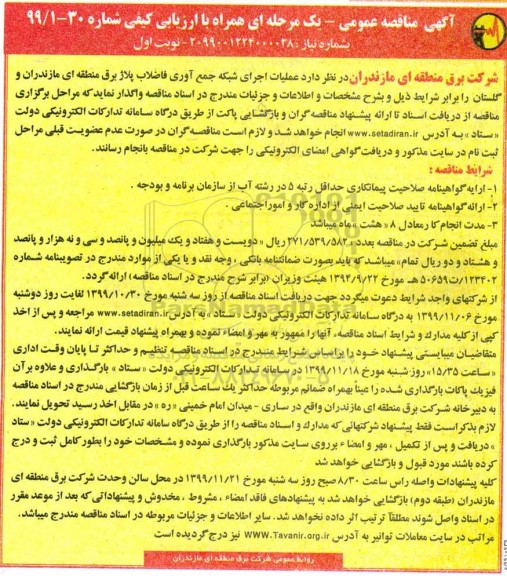 آگهی مناقصه عمومی - یک مرحله ای همراه با ارزیابی کیفی شماره ۳۰-۹۹/۱
شماره نیاز : ۲۰۹۹۰۰۱۲۲۴۰۰۰۰۳۸ - نوبت اول
شرکت برق منطقه ای مازندران در نظر دارد عملیات اجرای شبکه جمع آوری فاضلاب پلاژ برق منطقه ای مازندران و
گلستان را برابر شرایط ذیل و بشرح مشخصات و اطلاعات و جزئیات مندرج در اسناد مناقصه واگذار نماید که مراحل برگزاری
مناقصه از دریافت اسناد تا ارائه پیشنهاد مناقصه گران و بازگشایی پاکت از طریق درگاه سامانه تدارکات الکترونیکی دولت
« ستاد » به آدرس www.setadiran.ir انجام خواهد شد و لازم است مناقصه گران در صورت عدم عضویت قبلی مراحل
ثبت نام در سایت مذکور و دریافت گواهی امضای الکترونیکی را جهت شرکت در مناقصه بانجام رسانند.
شرایط مناقصه :
۱- ارایه گواهینامه صلاحیت پیمانکاری حداقل رتبه ۵ در رشته آب از سازمان برنامه و بودجه .
۲- ارائه گواهینامه تایید صلاحیت ایمنی از اداره کار و امور اجتماعی .
۳- مدت انجام کار معادل ۸ « هشت » ماه میباشد
مبلغ تضمین شرکت در مناقصه بعدد ۲۷۱/۵۳۹/۵۸۲ ریال « دویست و هفتاد و یک میلیون و پانصد و سی و نه هزار و پانصد
و هشتاد و دو ریال تمام» میباشد که باید بصورت ضمانتنامه بانکی ، وجه نقد و یا یکی از موارد مندرج در تصویبنامه شماره
۱۲۳۴۰۲/ت۵۰۶۵۹ هـ مورخ ۱۳۹۴/۹/۲۲ هیئت وزیران (برابر شرح مندرج در اسناد مناقصه) ارائه گردد.
از شرکتهای واجد شرایط دعوت میگردد جهت دریافت اسناد مناقصه از روز سه شنبه مورخ ۱۳۹۹/۱۰/۳۰ لغایت روز دوشنبه
مورخ ۱۳۹۹/۱۱/۰۶ به درگاه سامانه تدارکات الکترونیکی دولت «ستاد » به آدرس www.setadiran.ir مراجعه و پس از اخذ
کپی از کلیه مدارک و شرایط اسناد مناقصه، آنها را ممهور به مهر و امضاء نموده و بهمراه پیشنهاد قیمت ارائه نمایند.
متقاضیان میبایستی پیشنهاد خود را براساس شرایط مندرج در اسناد مناقصه، تنظیم و حداکثر تا پایان وقت اداری
«ساعت ۱۵/۳۵» روز شنبه مورخ ۱۳۹۹/۱۱/۱۸ در سامانه تدارکات الکترونیکی دولت « ستاد » بارگذاری و علاوه بر آن
فیزیک پاکات بارگذاری شده را عیناً بهمراه ضمائم مربوطه حداکثر یک ساعت قبل از زمان بازگشایی مندرج در اسناد مناقصه
به دبیرخانه شرکت برق منطقه ای مازندران واقع در ساری - میدان امام خمینی «ره » در مقابل اخذ رسید تحویل نمایند.
لازم بذکر است فقط پیشنهاد شرکتهائی که مدارک و اسناد مناقصه را از طریق درگاه سامانه تدارکات الکترونیکی دولت «ستاد
» دریافت و پس از تکمیل ، مهر و امضاء بر روی سایت مذکور بارگذاری نموده و مشخصات خود را بطور کامل ثبت و درج
کرده باشند مورد قبول و بازگشایی خواهد شد
کلیه پیشنهادات واصله راس ساعت ۸/۳۰ صبح روز سه شنبه مورخ ۱۳۹۹/۱۱/۲۱ در محل سالن وحدت شرکت برق منطقه ای
مازندران (طبقه دوم) بازگشایی خواهد شد به پیشنهادهای فاقد امضاء ، مشروط ، مخدوش و پیشنهاداتی که بعد از موعد مقرر
در اسناد واصل شوند مطلقاً ترتیب اثر داده نخواهد شد. سایر اطلاعات و جزئیات مربوطه در اسناد مناقصه مندرج میباشد.
مراتب در سایت معاملات توانیر به آدرس www.Tavanir.org.ir نیز درج گردیده است
روابط عمومی شرکت برق منطقه ای مازندران